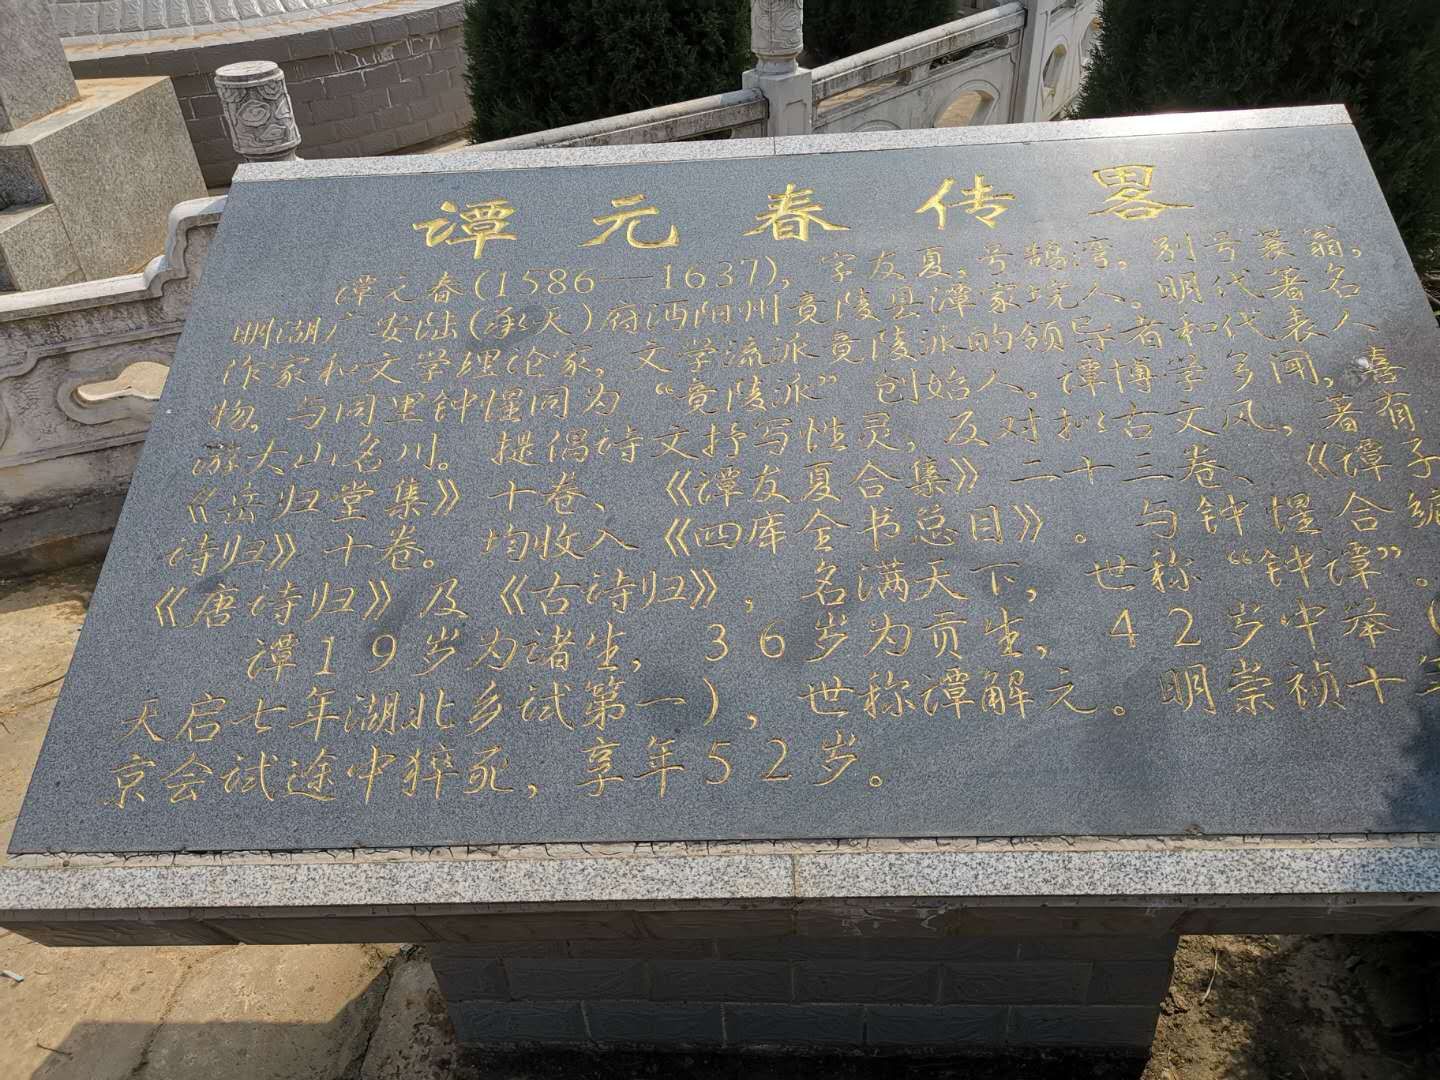 谭元春传畧
谭元春(1586—1637)，字友夏，号鹄湾，别号蓑翁，
明湖广安陆(承天)府沔阳州竟陵县潭家垸人。明代著名
作家和文学理论家，文学流派竟陵派的领导者和代表人
物，与同里钟惺同为“竟陵派”创始人。谭博学多闻，喜
游大山名川。提倡诗文抒写性灵，反对拟古文风，著有
《岳归堂集》十卷、《谭友夏合集》二十三卷、《谭子
诗归》十卷。均收入《四库全书总目》。与钟惺合编
《唐诗归》及《古诗归》，名满天下，世称“钟谭”。
谭19岁为诸生，36岁为贡生，42岁中举(
天启七年湖北乡试第一)，世称谭解元。明崇祯十年
京会试途中猝死，享年52岁。